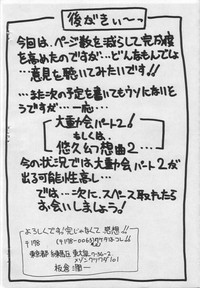 後がきぃ〜っ
今回は、ページ数を減らして完成度
を高めたのですが…どんなもんでしょ
…意見を聴いてみたいです!!
…また次の予定を書いてもウソになりそ
うですが…一応…
大運動会パート2!
もしくは、
悠久幻想曲2…
今の状況では、大運動会パート2が
出る可能性高し…
では…次に、スペース取れたら
お会いしましょう!
よろしくです!
〒178
東京都練馬区東大泉
板倉